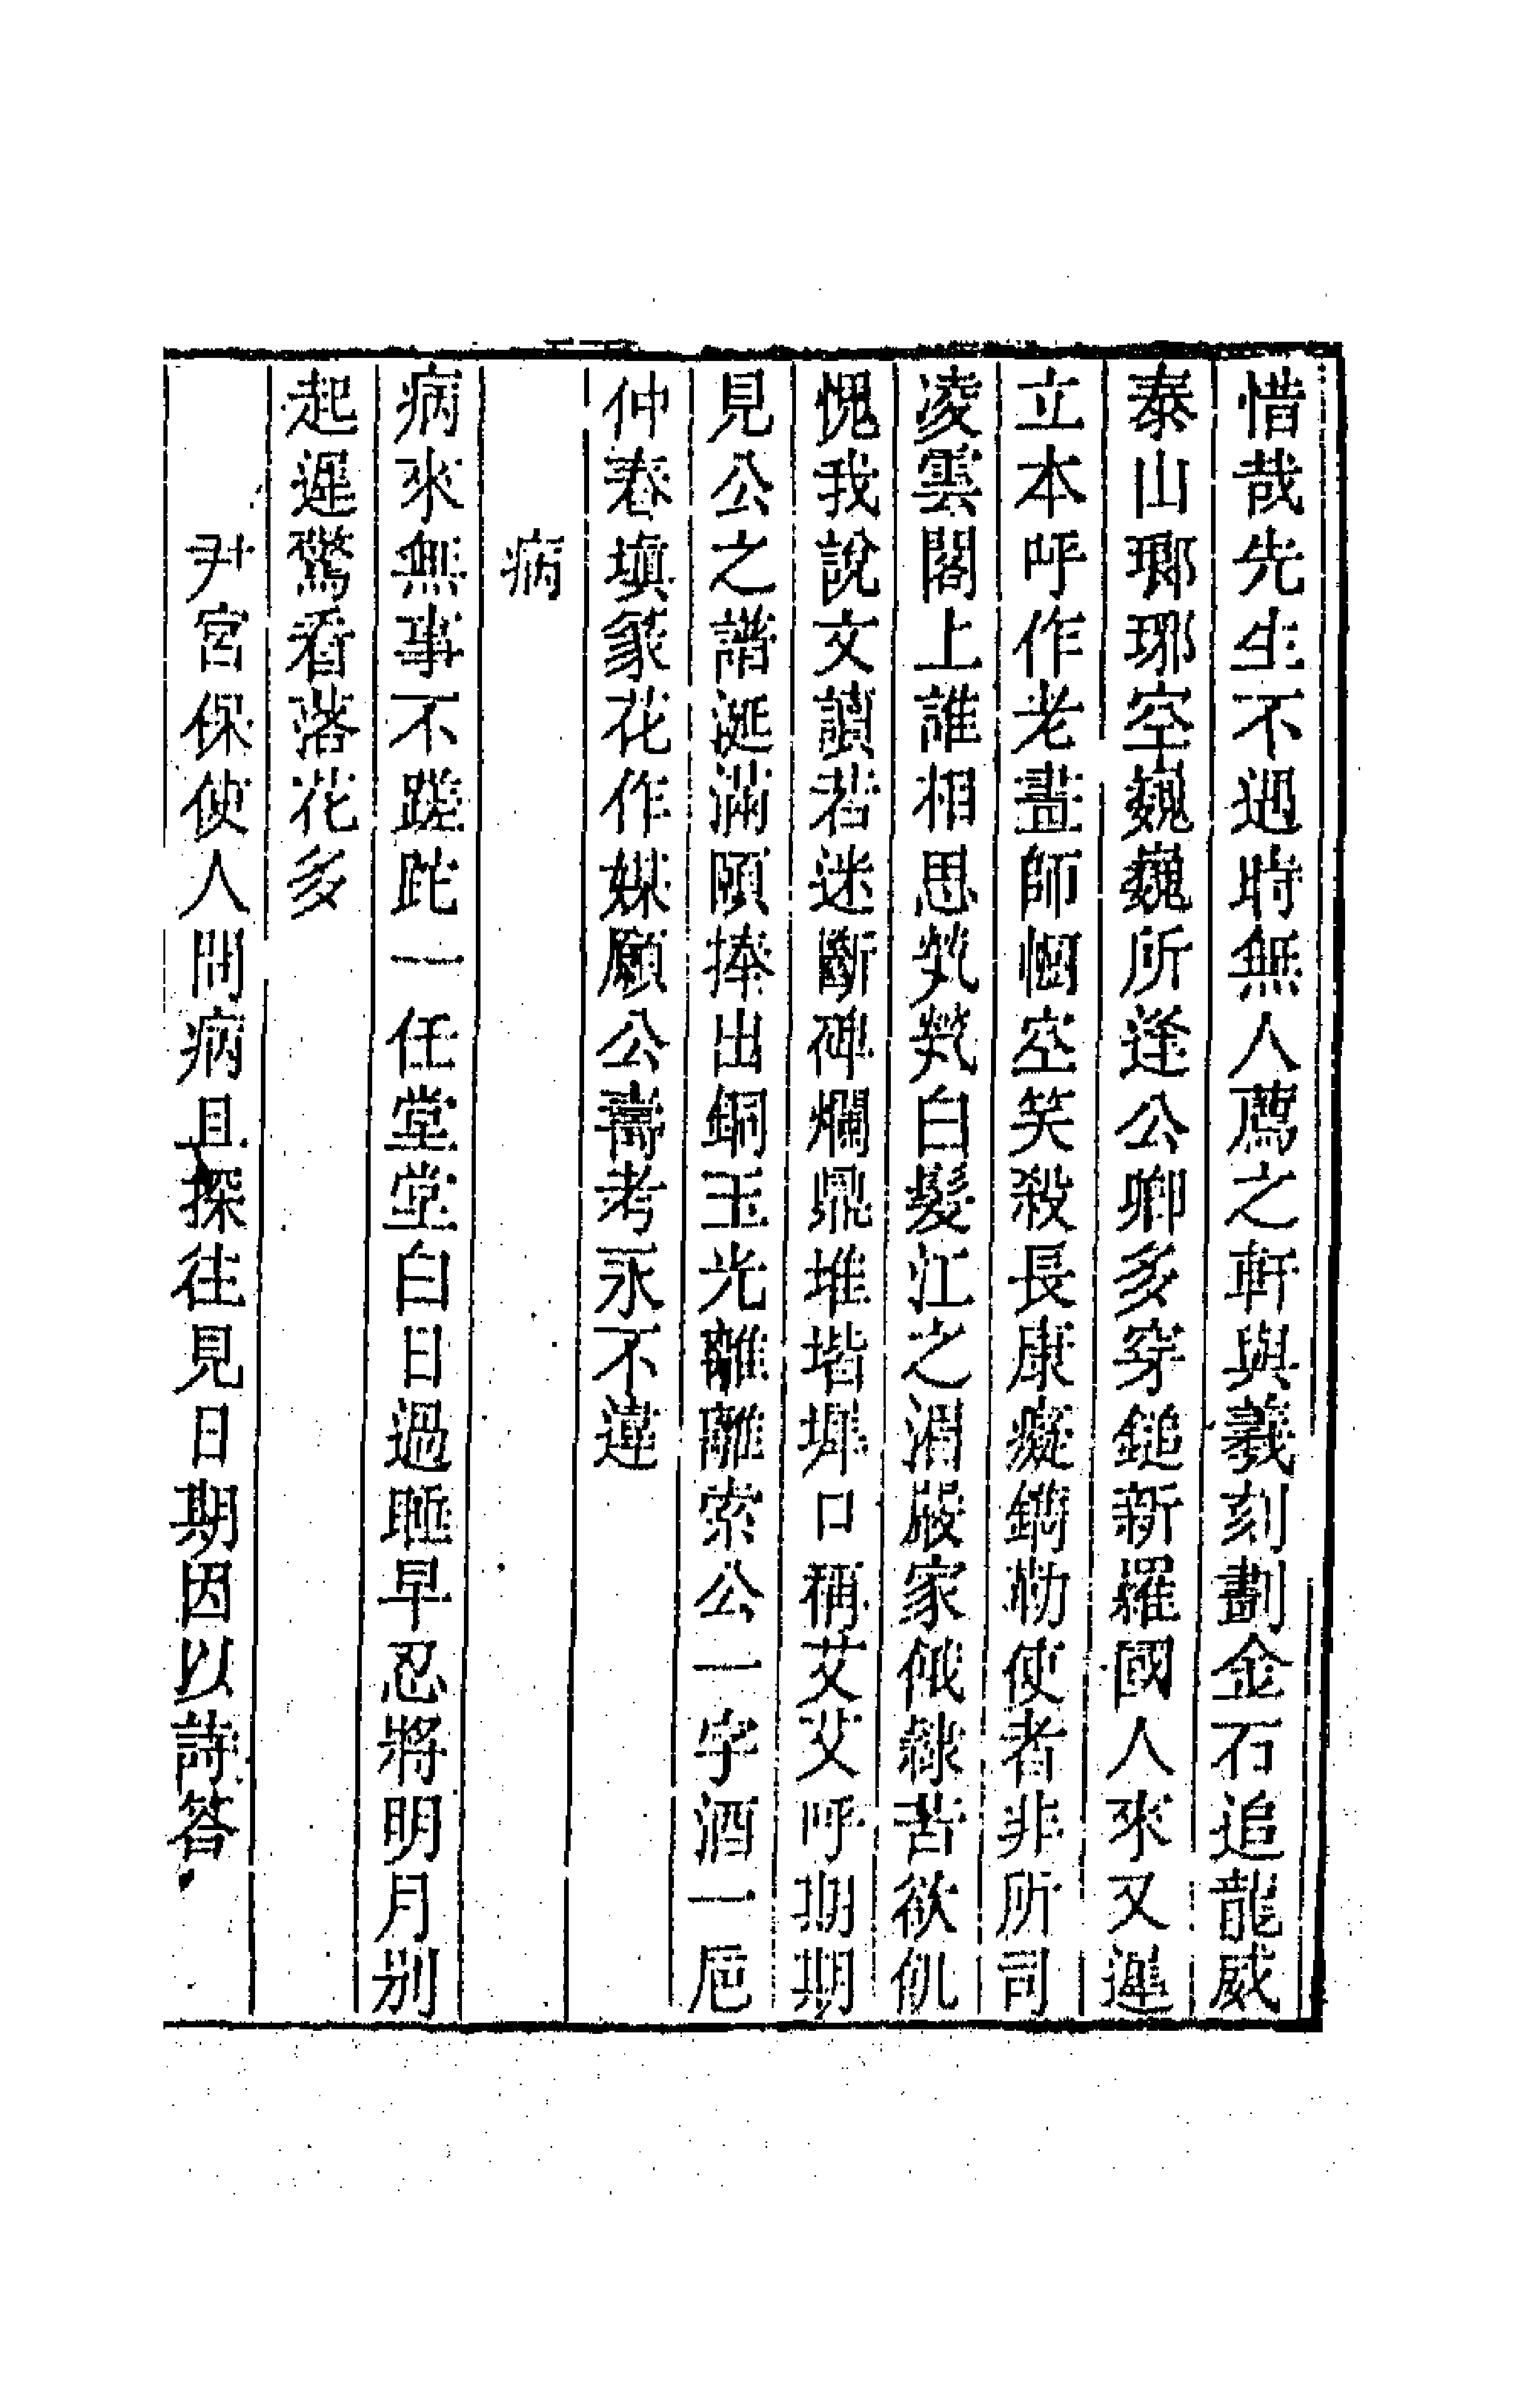 惜哉先生不遇時無人薦之軒與羲刻劃金石追龍威
泰山瑯琊空巍巍所逢公卿多穿鎚新羅國人來又遲
立本呼作老畫師悃空笑殺長康癡鐫勒使者非所司
凌雲閣上誰相思煢煢白髮江之湄嚴家餓隸苦欲飢
愧我說文讀若迷斷碑爛鼎堆堦墀口稱艾艾呼期期
見公之譜涎滿頤捧出銅玉光離離索公一字酒一卮
仲春填篆花作媒願公壽考永不違
病
病來無事不蹉跎一任堂堂白日過睡早忍將明月别
起遲驚看落花多
尹宮保使人問病且探往見日期因以詩答